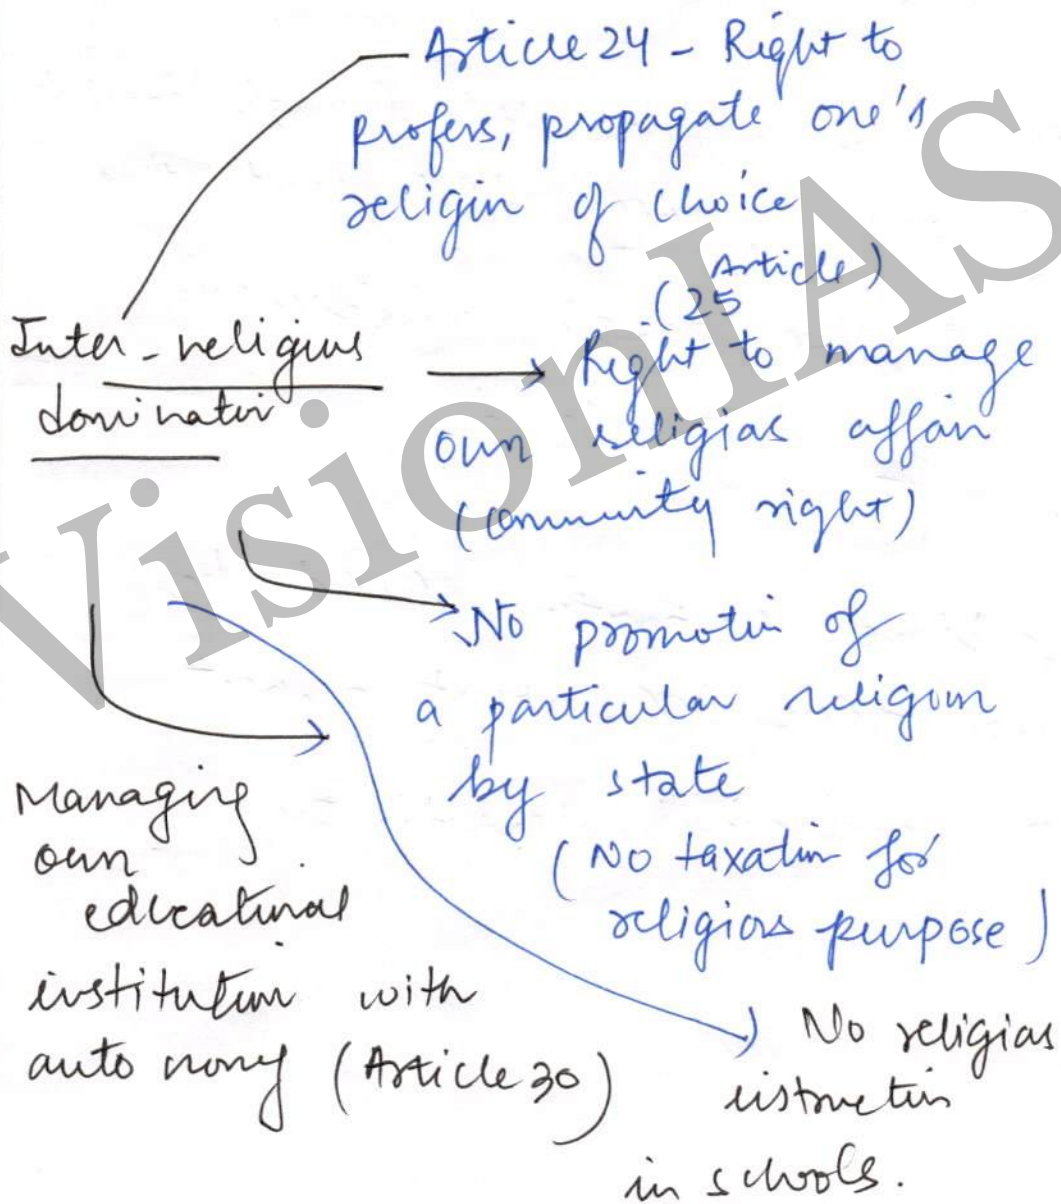 Article 24 - Right to
profers, propagate one's
religin of choice
(Article 25)
Inter-religius
dominatin
Right to manage
own religias affair
(community right)
No promotin of
a particular religion
by state
(No taxatin for
religios purpose)
Managing
own
educatinal
institutim with
autonomy (Article 30)
No religias
istructin
in schools.
VisionIAS